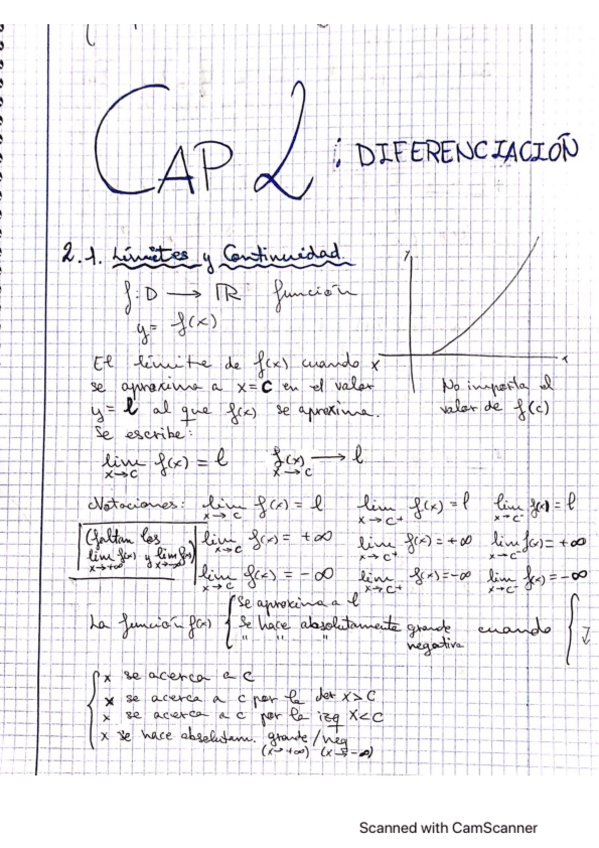 CAP 2: DIFERENCIACIÓN
2.1. Límites y Continuidad.
f: D → ℝ función
y = f(x)
y
x
El límite de f(x) cuando x
se aproxima a x = c en el valor
y = l al que f(x) se aproxima.
No importa el
valor de f(c)
Se escribe:
lim x→c f(x) = l f(x) → l x→c
Notaciones: lim x→c f(x) = l lim x→c⁺ f(x) = l lim x→c⁻ f(x) = l
(faltan los
lim x→+∞ f(x) y lim x→-∞ f(x))
lim x→c f(x) = +∞ lim x→c⁺ f(x) = +∞ lim x→c⁻ f(x) = +∞
lim x→c f(x) = -∞ lim x→c⁺ f(x) = -∞ lim x→c⁻ f(x) = -∞
La función f(x) { Se aproxima a l
Se hace absolutamente grande cuando {
" " " negativa
{ x se acerca a c
x se acerca a c por la der x > c
x se acerca a c por la izq x < c
x se hace absolutam. grande/neg
(x→+∞) (x→-∞)
Scanned with CamScanner